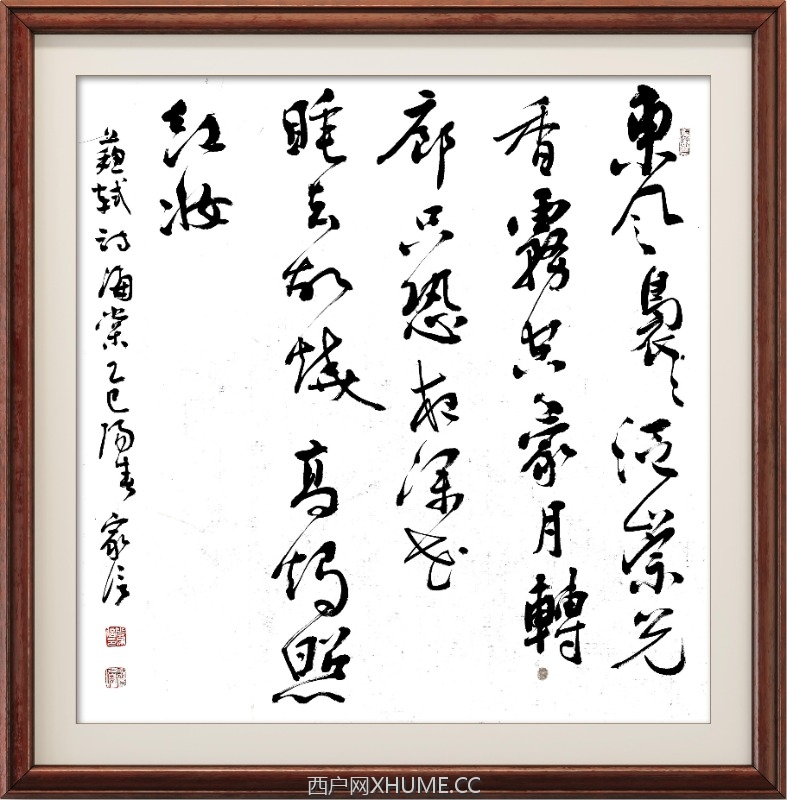 東风裊々泛崇光
香霧空蒙月轉
廊只恐夜深花
睡去故燒高燭照
红妝
蘇軾诗海棠乙巳阳春 家信
西户网XHUME.CC